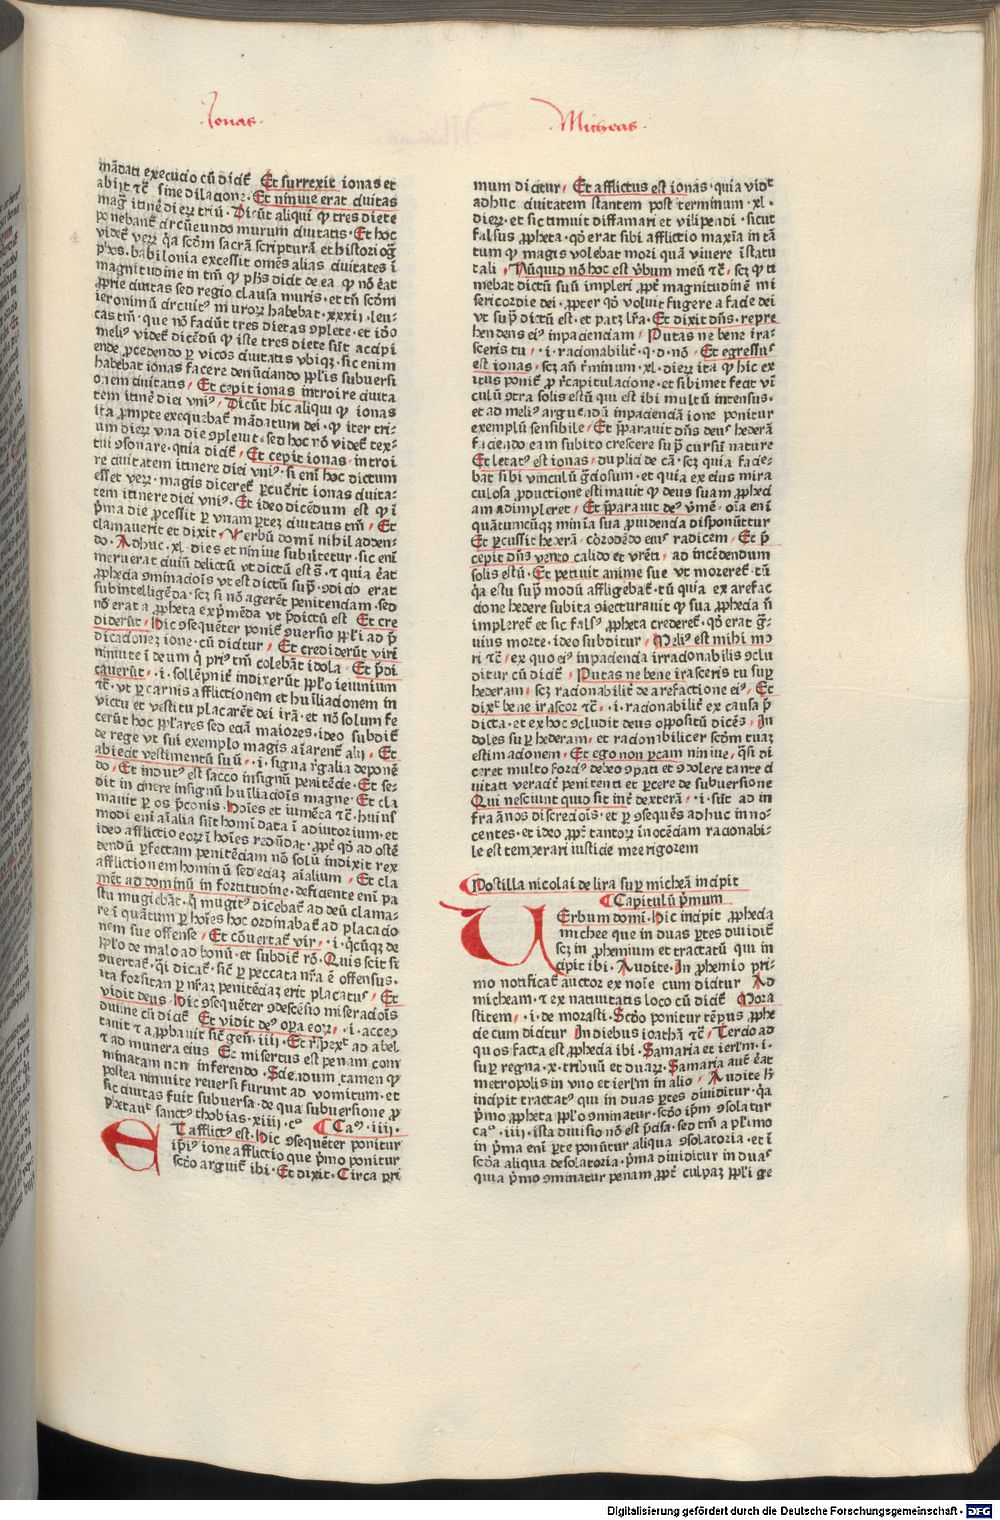 Ionas
Micheas
mādati execucio cū dicit᷑ Et surrexit ionas et
abijt ⁊c̄ sine dilacione Et niniue erat ciuitas
mag᷑ itineī dierꝝ triū Dicūt aliqui ꝙ tres diete
ponebant᷑ circūeundo murum ciuitatis Et hoc
videt᷑ verꝝ q̄a scd̄m sacrā scripturā et historiog᷑
ph̄os babilonia excessit om̄es alias ciuitates ī
magnitudine in tm̄ ꝙ ph̄s dicit de ea ꝙ nō ēat
ꝓprie ciuitas sed regio clausa muris et tn̄ scd̄m
ieronimū circuitꝰ murorꝝ habebat xxxij leu-
cas tm̄ que nō faciūt tres dietas ꝯplete et iō
meliꝰ videt᷑ dicēdū ꝙ iste tres diete sūt accipi
ende ꝓcedendo ꝑ vicos ciuitatis vbiqꝫ sic enim
habebat ionas facere denūciando ppl̄is subuersi
onem ciuitatis Et cepit ionas introire ciuita
tem itineī diei vniꝰ Dicūt hic aliqui ꝙ ionas
ita ꝓmpte exequebat᷑ mādatum dei ꝙ iter tri-
um dierꝝ vna die ꝯpleuit sed hoc nō videt᷑ tex-
tui ꝯsonare quia dicit᷑ Et cepit ionas introi
re ciuitatem itinere diei vniꝰ si eni hoc dictum
esset verꝝ magis diceret᷑ ꝑcurrit ionas ciuita-
tem itinere diei vniꝰ Et ideo dicēdum est ꝙ ī
p̄ma die ꝓcessit ꝑ vnam ꝑtem ciuitatis tm̄ Et
clamauerit et dixit Verbū domī nihil adden-
do Adhuc xl dies et niniue subūtetur sic eni
meruerat ciuiū delictū vt dictū est s̄ ⁊ quia ēat
ꝓphecia ꝯminaciōis vt est dictū sup̄ ꝯdicio erat
subintelligēda scꝫ si nō agerēt penitenciam sed
nō erat a ꝓpheta exp̄mēda vt p̄dictū est Et cre
diderūt Hic ꝯsequēter ponit᷑ ꝯuersio ppl̄i ad p̄
dicacionē ione cū dicitur Et crediderūt viri
niniuite ī deum q̄ priꝰ tm̄ colebāt idola Et p̄di
cauerūt i sollēpnit᷑ indixerūt ppl̄o ieiunium
⁊c̄ vt ꝑ carnis afflictionem et hūiliacionem in
victu et vestitu placarēt dei irā et nō solum fe
cerūt hoc ppl̄ares sed eciā maiores ideo subdit᷑
de rege vt sui exemplo magis aīarent᷑ alij Et
abiecit vestimentū suū i signa regalia deponē
do Et indutꝰ est sacco insignū penitēcie Et se-
dit in cinere insignū hūiliaciōis magne Et cla
mauit ꝑ os p̄conis Hoīes et iumēta ⁊c̄ huius
modi eni aīalia sūt homī data ī adiutorium et
ideo afflictio eorꝝ ī hoīes redūdat ꝓpt᷑ qd̄ ad ostē
dendū ꝑfectam penitēciam nō solū indixit rex
afflictionem hominū sed eciaꝫ aīalium Et cla
mēt ad dominū in fortitudine deficiente eni pa
stu mugiebāt q̄ mugitꝰ dicebat᷑ ad deū clama-
re ī quātum ꝑ hoīes hoc ordinabat᷑ ad placacio
nem sue offense Et cōuertat᷑ vir i q̄cūqꝫ de
ppl̄o de malo ad bonū et subdit᷑ rō Quis scit si
ꝯuertat᷑ q̄i dicat᷑ sic᷑ ꝑ peccata nr̄a ē offensus
ita forsitan ꝑ nr̄aꝫ penitēciaꝫ erit placatus Et
vidit deus Hic ꝯsequēter ꝯdescēsio miseraciōis
diuine cū dicit᷑ Et vidit deꝰ oꝑa eorꝝ i accep
tauit ⁊ aꝓbauit sic᷑ gen̄ iiij Et r̄spex᷑ ad abel
⁊ ad munera eius Et misertus est penam com
minatam non inferendo Sciendum tamen ꝙ
postea niniuite reuersi furunt ad vomitum et
sic ciuitas fuit subuersa de qua subuersione ꝓ
phetau᷑ sanctꝰ thobias xiiij cº Caº iiij
ET afflictꝰ est Hic ꝯsequēter ponitur
ip̄iꝰ ione afflictio que p̄mo ponitur
scd̄o arguit᷑ ibi Et dixit Circa pri
mum dicitur Et afflictus est ionas quia vid᷑
adhuc ciuitatem stantem post terminum xl
dierꝝ et sic timuit diffamari et vilipendi sicut
falsus ꝓpheta qd̄ erat sibi afflictio maxīa in tā
tum ꝙ magis volebat mori quā viuere ī statu
tali Nūquid nō hoc est v̄bum meū ⁊c̄ scꝫ ꝙ ti
mebat dictū suū impleri ꝓpt᷑ magnitudinē mi
sericordie dei ꝓpter qd̄ voluit fugere a facie dei
vt sup̄ dictū est et patꝫ lr̄a Et dixit dn̄s repre
hendens eiꝰ inpacienciam Putas ne bene ira-
sceris tu i racionabilit᷑ q d nō Et egressus
est ionas scꝫ añ t᷑minum xl dierꝝ ita ꝙ hic ex
itus ponit᷑ ꝑ r᷑capitulacione et sibimet fecit vī
culū ꝯtra solis estū qui est ibi multū intensus
et ad meliꝰ arguendū inpacienciā ione ponitur
exemplū sensibile Et p̄parauit dn̄s deus hederā
faciendo eam subito crescere sup̄ cursū nature
Et letatꝰ est ionas duplici de cā scꝫ quia facie-
bat sibi vinculū g̃ciosum et quia ex eius mira
culosa ꝓductione estimauit ꝙ deus suam ꝓpheci
am adimpleret Et p̄parauit deꝰ v̄mē oīa eni
quātumcūqꝫ minīa sua ꝓuidencia disponūtur
Et ꝑcussit hederā corrodēdo eius radicem Et p̄
cepit dn̄s vento calido et vrēti ad incēdendum
solis estū Et petiuit anime sue vt moreret᷑ tū
q̄a estu sup̄ modū affligebat᷑ tū quia ex arefac
cione hedere subita ꝯiecturauit ꝙ sua ꝓphecia ñ
impleret᷑ et sic falsꝰ ꝓpheta crederet᷑ qd̄ erat g̃-
uius morte ideo subditur Meliꝰ est mihi mo
ri ⁊c̄ ex quo eiꝰ inpaciencia irracionabilis ꝯclu
ditur cū dicit᷑ Putas ne bene irasceris tu suꝑ
hederam scꝫ racionabilit᷑ de arefactione eiꝰ Et
dix᷑ bene irascor ⁊c̄ i racionabilit᷑ ex causa p̄
dicta et ex hoc ꝯcludit deus oppositū dicēs In
doles suꝑ hederam et racionabiliter scd̄m tuaꝫ
estimacionem Et ego non parcam niniue q̄si di
ceret multo forciꝰ debeo ꝯpati et ꝯdolere tante ci
uitati veracit᷑ penitenti et parcere de subuersione
Qui nesciunt quid sit int᷑ dexterā i sūt ad in
fra ānos discreciōis et ꝑ ꝯsequēs adhuc inno-
centes et ideo ꝓpt᷑ tantorꝝ īnocēciam racionabi-
le est temperari iusticie mee rigorem
Postilla nicolai de lira suꝑ micheā incipit
Capitulū p̄mum
VErbum domi Hic incipit ꝓphecia
michee que in duas ꝑtes diuidit᷑
scꝫ in ꝓhemium et tractatū qui in
cipit ibi Audite In ꝓhemio pri-
mo notificat᷑ auctor ex noīe cum dicitur Ad
micheam ⁊ ex natiuitatis loco cū dicit᷑ Mora
stitem i de morasti Scd̄o ponitur tēpus ꝓphe
cie cum dicitur In diebus ioathā ⁊c̄ Tercio ad
quos facta est ꝓphecia ibi Samaria et ierl̄m i
suꝑ regna x tribuū et duarꝝ Samaria aut᷑ ēat
metropolis in vno et ierl̄m in alio Audite H᷑
incipit tractatꝰ qui in duas ꝑtes diuiditur q̄a
p̄mo ꝓpheta ppl̄o ꝯminatur scd̄o ip̄m ꝯsolatur
caº iiij ista diuisio nō est p̄cisa sed tm̄ a p̄imo
in p̄ma eni ꝑte ponūtur aliqua ꝯsolatoria et ī
scd̄a aliqua desolatoria p̄ma diuiditur in duas
quia p̄mo ꝯminatur penam ꝓpt᷑ culpaꝫ ppl̄i ge
Digitalisierung gefördert durch die Deutsche Forschungsgemeinschaft - DFG